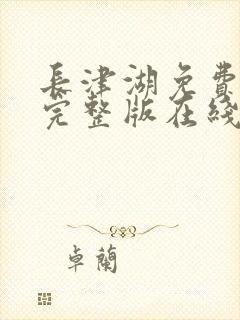 長津湖免費
完整版在綫
卓蘭